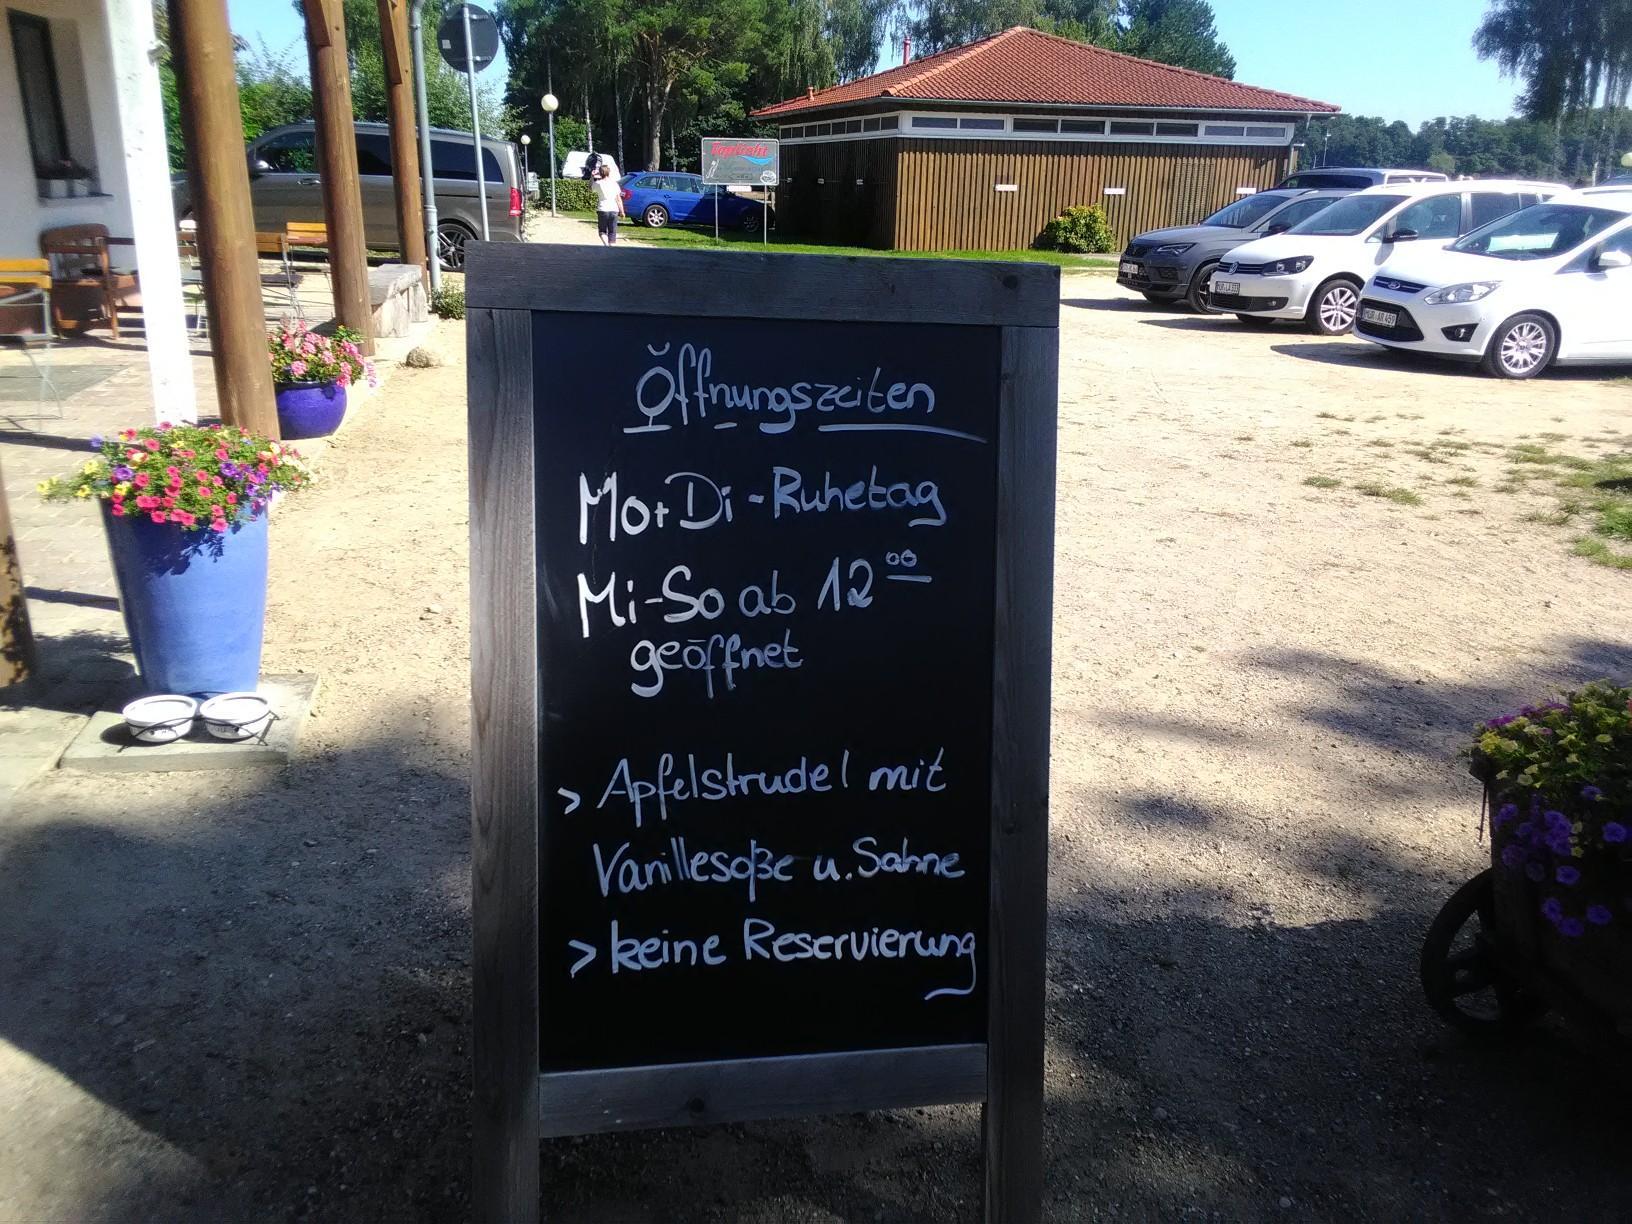 Öffnungszeiten
Mo+Di-Ruhetag
Mi-So ab 12⁰⁰
geöffnet
> Apfelstrudel mit
Vanillesoße u. Sahne
> keine Reservierung